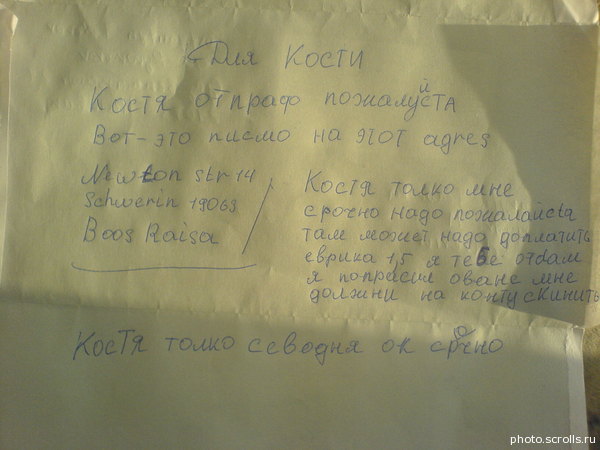 Для Кости
Костя отпраф пожалуйста
Вот-это писмо на этот agres
Newton str 14
Schwerin 19063
Boos Raisa
Костя толко мне
срочно надо пожалайста
там может надо доплатить
еврика 1,5 я тебе отдам
я попрасил ованс мне
должни на конту скинить
Костя толко севодня ок срочно
photo.scrolls.ru